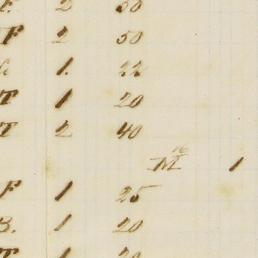 F. 2 50
F 2 50
1. 22
T 1 20
T 2 40
M 16 1
F 1 25
B. 1 20
T 1 20